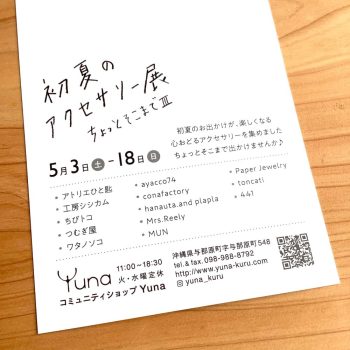 初夏の
アクセサリー展
ちょっとそこまでⅢ
5月3日土-18日日
初夏のお出かけが、楽しくなる
心おどるアクセサリーを集めました
ちょっとそこまで出かけませんか♪
• アトリエひと匙
• 工房シシカム
• ちびトコ
• つむぎ屋
• ワタノソコ
• ayacco74
• conafactory
• hanauta.and plapla
• Mrs.Reely
• MUN
• Paper Jewelry
• toncati
• 441
Yuna
11:00~18:30
火・水曜定休
コミュニティショップ Yuna
沖縄県与那原町字与那原548
tel.& fax.098-988-8792
https://www.yuna-kuru.com
yuna_kuru